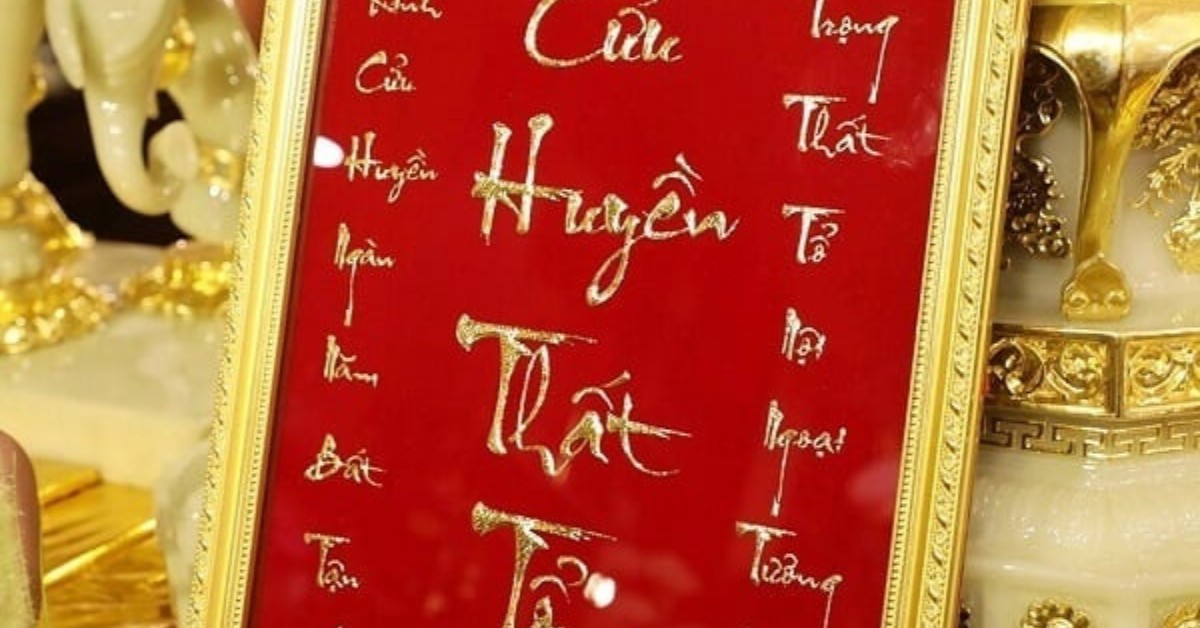 Kính
Cửu
Huyền
Ngàn
Năm
Bất
Tận
Cửu
Huyền
Thất
Tổ
Trọng
Thất
Tổ
Nội
Ngoại
Tưởng